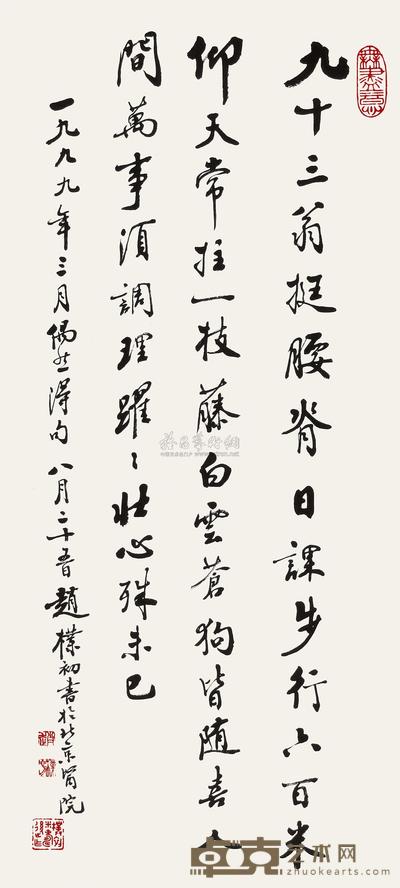 九十三翁挺腰脊日課步行六百米
仰天常拄一枝藤白雲蒼狗皆随喜人
間萬事須調理躍〻壯心殊未已
一九九九年三月偶然得句八月二十五日趙樸初書於北京醫院
卓克艺术网
www.zhuokearts.com